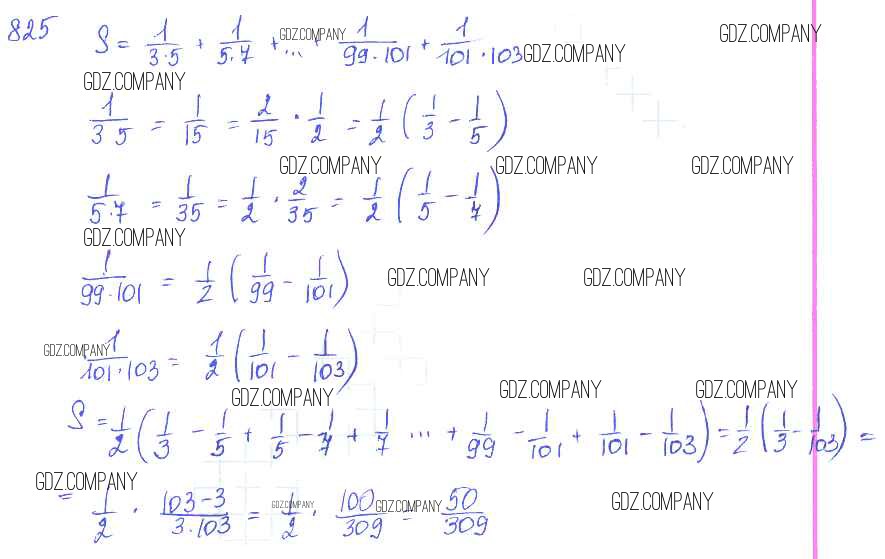 825 S = 1/(3·5) + 1/(5·7) + ... + 1/(99·101) + 1/(101·103) GDZ.COMPANY GDZ.COMPANY GDZ.COMPANY
GDZ.COMPANY
1/(3 5) = 1/15 = 2/15 · 1/2 = 1/2 (1/3 − 1/5)
GDZ.COMPANY GDZ.COMPANY GDZ.COMPANY
1/(5·7) = 1/35 = 1/2 · 2/35 = 1/2 (1/5 − 1/7)
GDZ.COMPANY
1/(99·101) = 1/2 (1/99 − 1/101) GDZ.COMPANY GDZ.COMPANY
GDZ.COMPANY 1/(101·103) = 1/2 (1/101 − 1/103)
GDZ.COMPANY GDZ.COMPANY GDZ.COMPANY
S = 1/2 (1/3 − 1/5 + 1/5 − 1/7 + 1/7 ... + 1/99 − 1/101 + 1/101 − 1/103) = 1/2 (1/3 − 1/103) =
GDZ.COMPANY GDZ.COMPANY GDZ.COMPANY GDZ.COMPANY
= 1/2 · (103−3)/(3·103) = 1/2 · 100/309 = 50/309